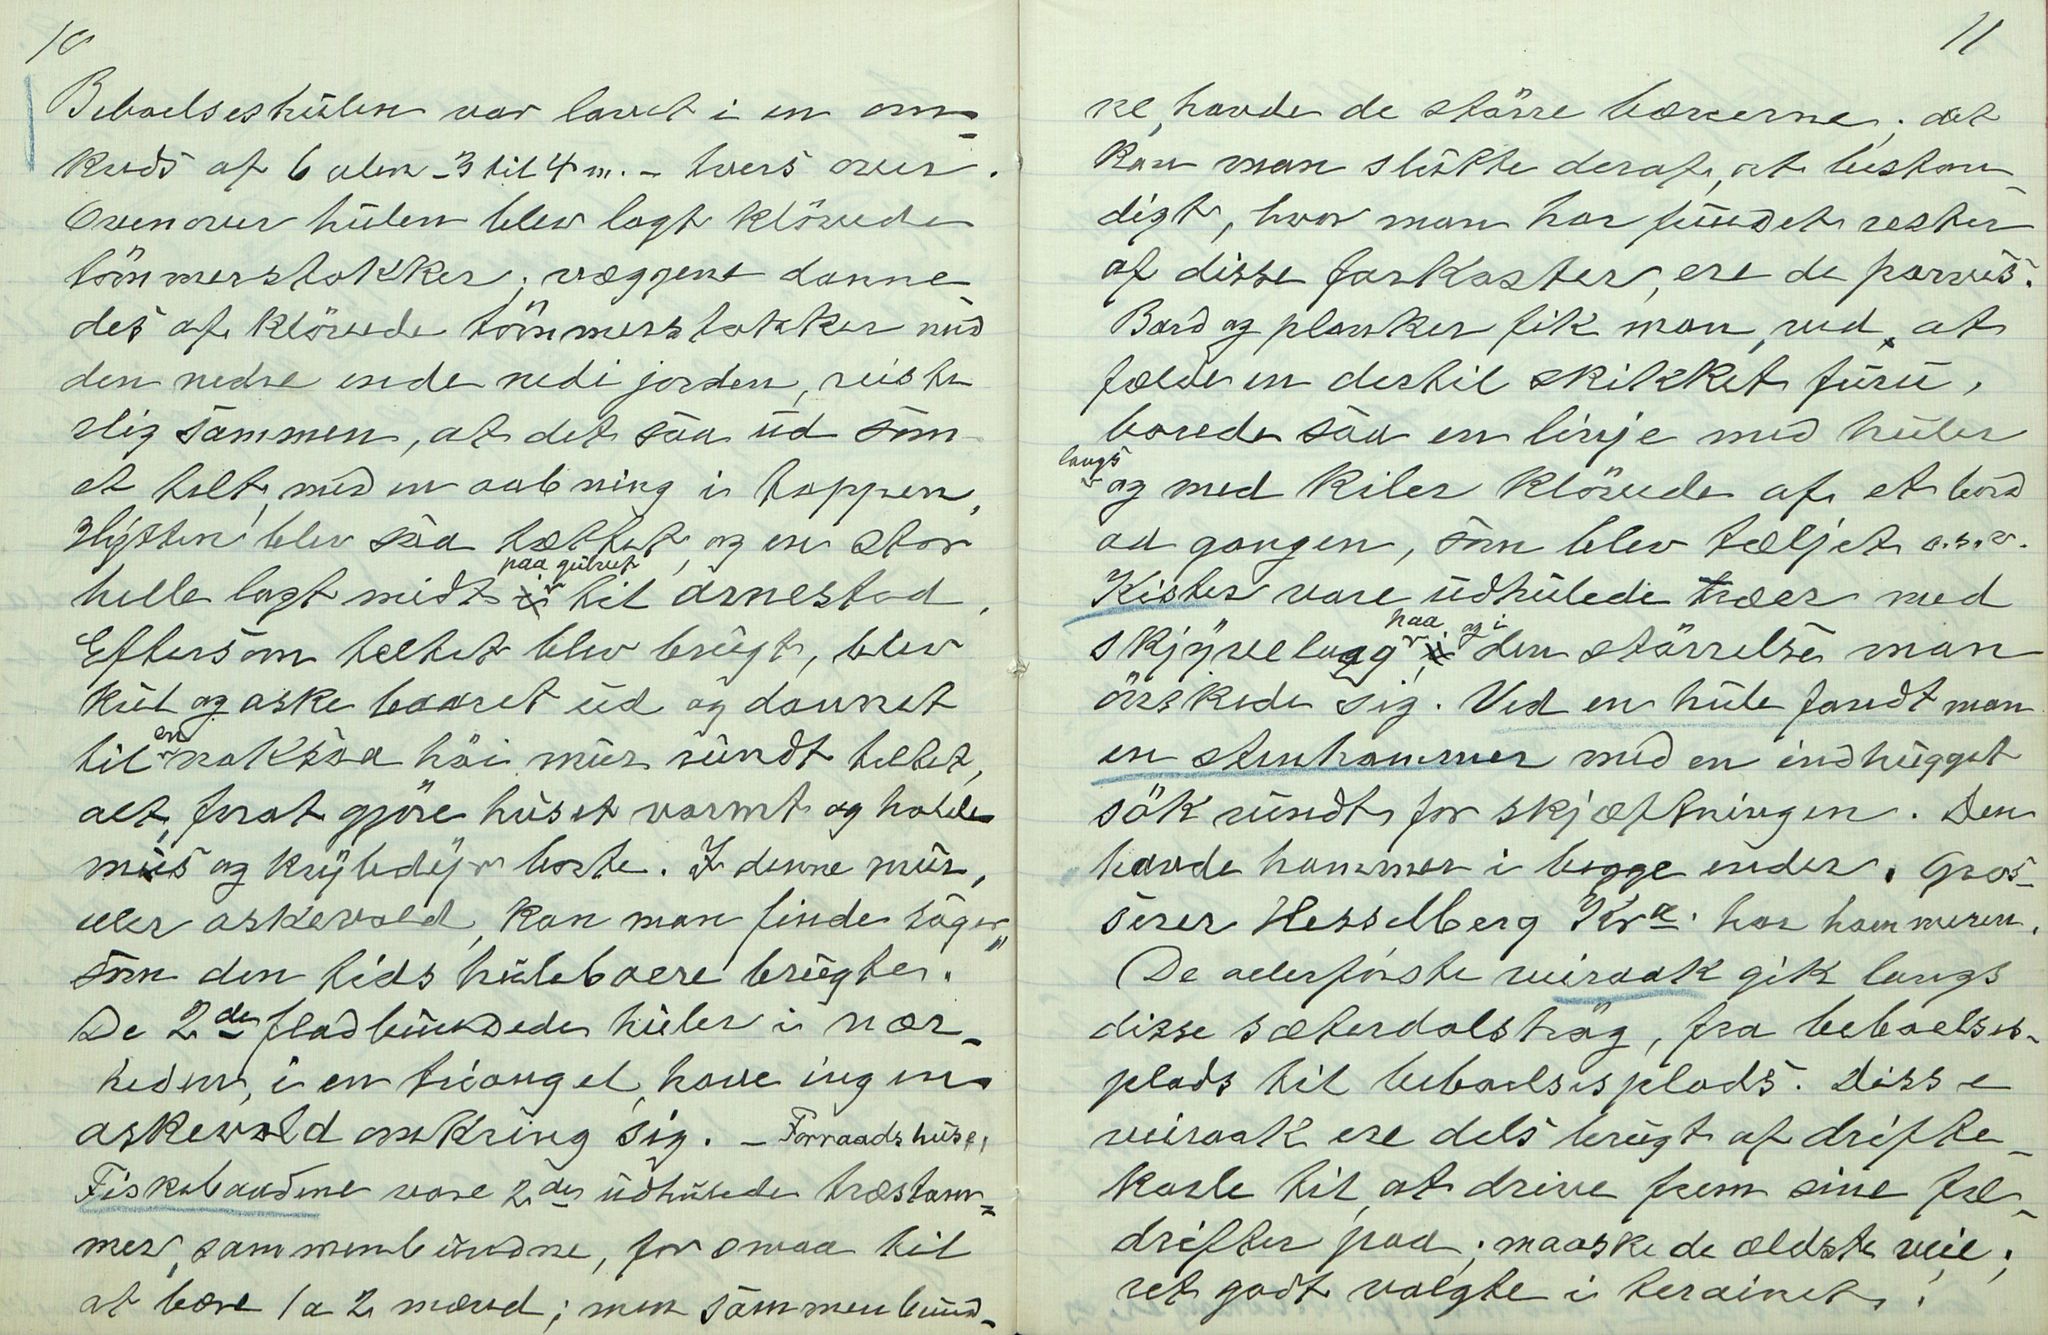 10
Beboelseshulen var lavet i en om-
kreds af 6 alen - 3 til 4 m. - tvers over.
Ovenover hulen blev lagt klövede
tömmerstokker; væggene danne
des af klövede tömmerstokker med
den nedre ende nedi jorden, reiste
slig sammen, at det saa ud som
et telt, med en aabning i toppen.
Hytten blev saa tættet, og en stor
helle lagt midt paa gulvet til arnested.
Eftersom teltet blev brugt, blev
kul og aske baaret ud og dannet
til en noksaa höi mur rundt teltet,
alt, forat gjöre huset varmt og holde
mus og krybedyr borte. I denne mur,
eller askevold, kan man finde sager,
som den tids huleboere brugte.
De 2de fladbundede huler i nær-
heden, i en triangel, have ingen
askevold omkring sig. - Forraadshuse.
Fiskebaadene vare 2de udhulede træstam-
mer, sammenbundne, for smaa til
at bære 1 a 2 mænd; men sammenbund-
11
ne, havde de större bæreevne; det
kan man slutte deraf, at bestan-
digt, hvor man har fundet rester
af disse farkoster, ere de parvis.
Bord og planker fik man, ved at
fælde en dertil skikket furu,
borede saa en linje med huler
langs og med kiler klövede af et bord
ad gangen, som blev tæljet o.s.v.
Kister vare udhulede træer med
skjyvelaag paa og i den störrelse man
önskede sig. Ved en hule fandt man
en stenhammer med en indhugget
sök rundt for skjæftningen. Den
havde hammer i begge ender. Gros-
serer Hesselberg Kra. har hammeren.
De allerförste veiraak gik langs
disse sæterdalsträg, fra beboelses-
plads til beboelsesplads. Disse
veiraak ere dels brugt af drifte-
karle til, at drive frem sine fæ-
drifter paa; maaske de ældste veie;
ret godt valgte i terainet!